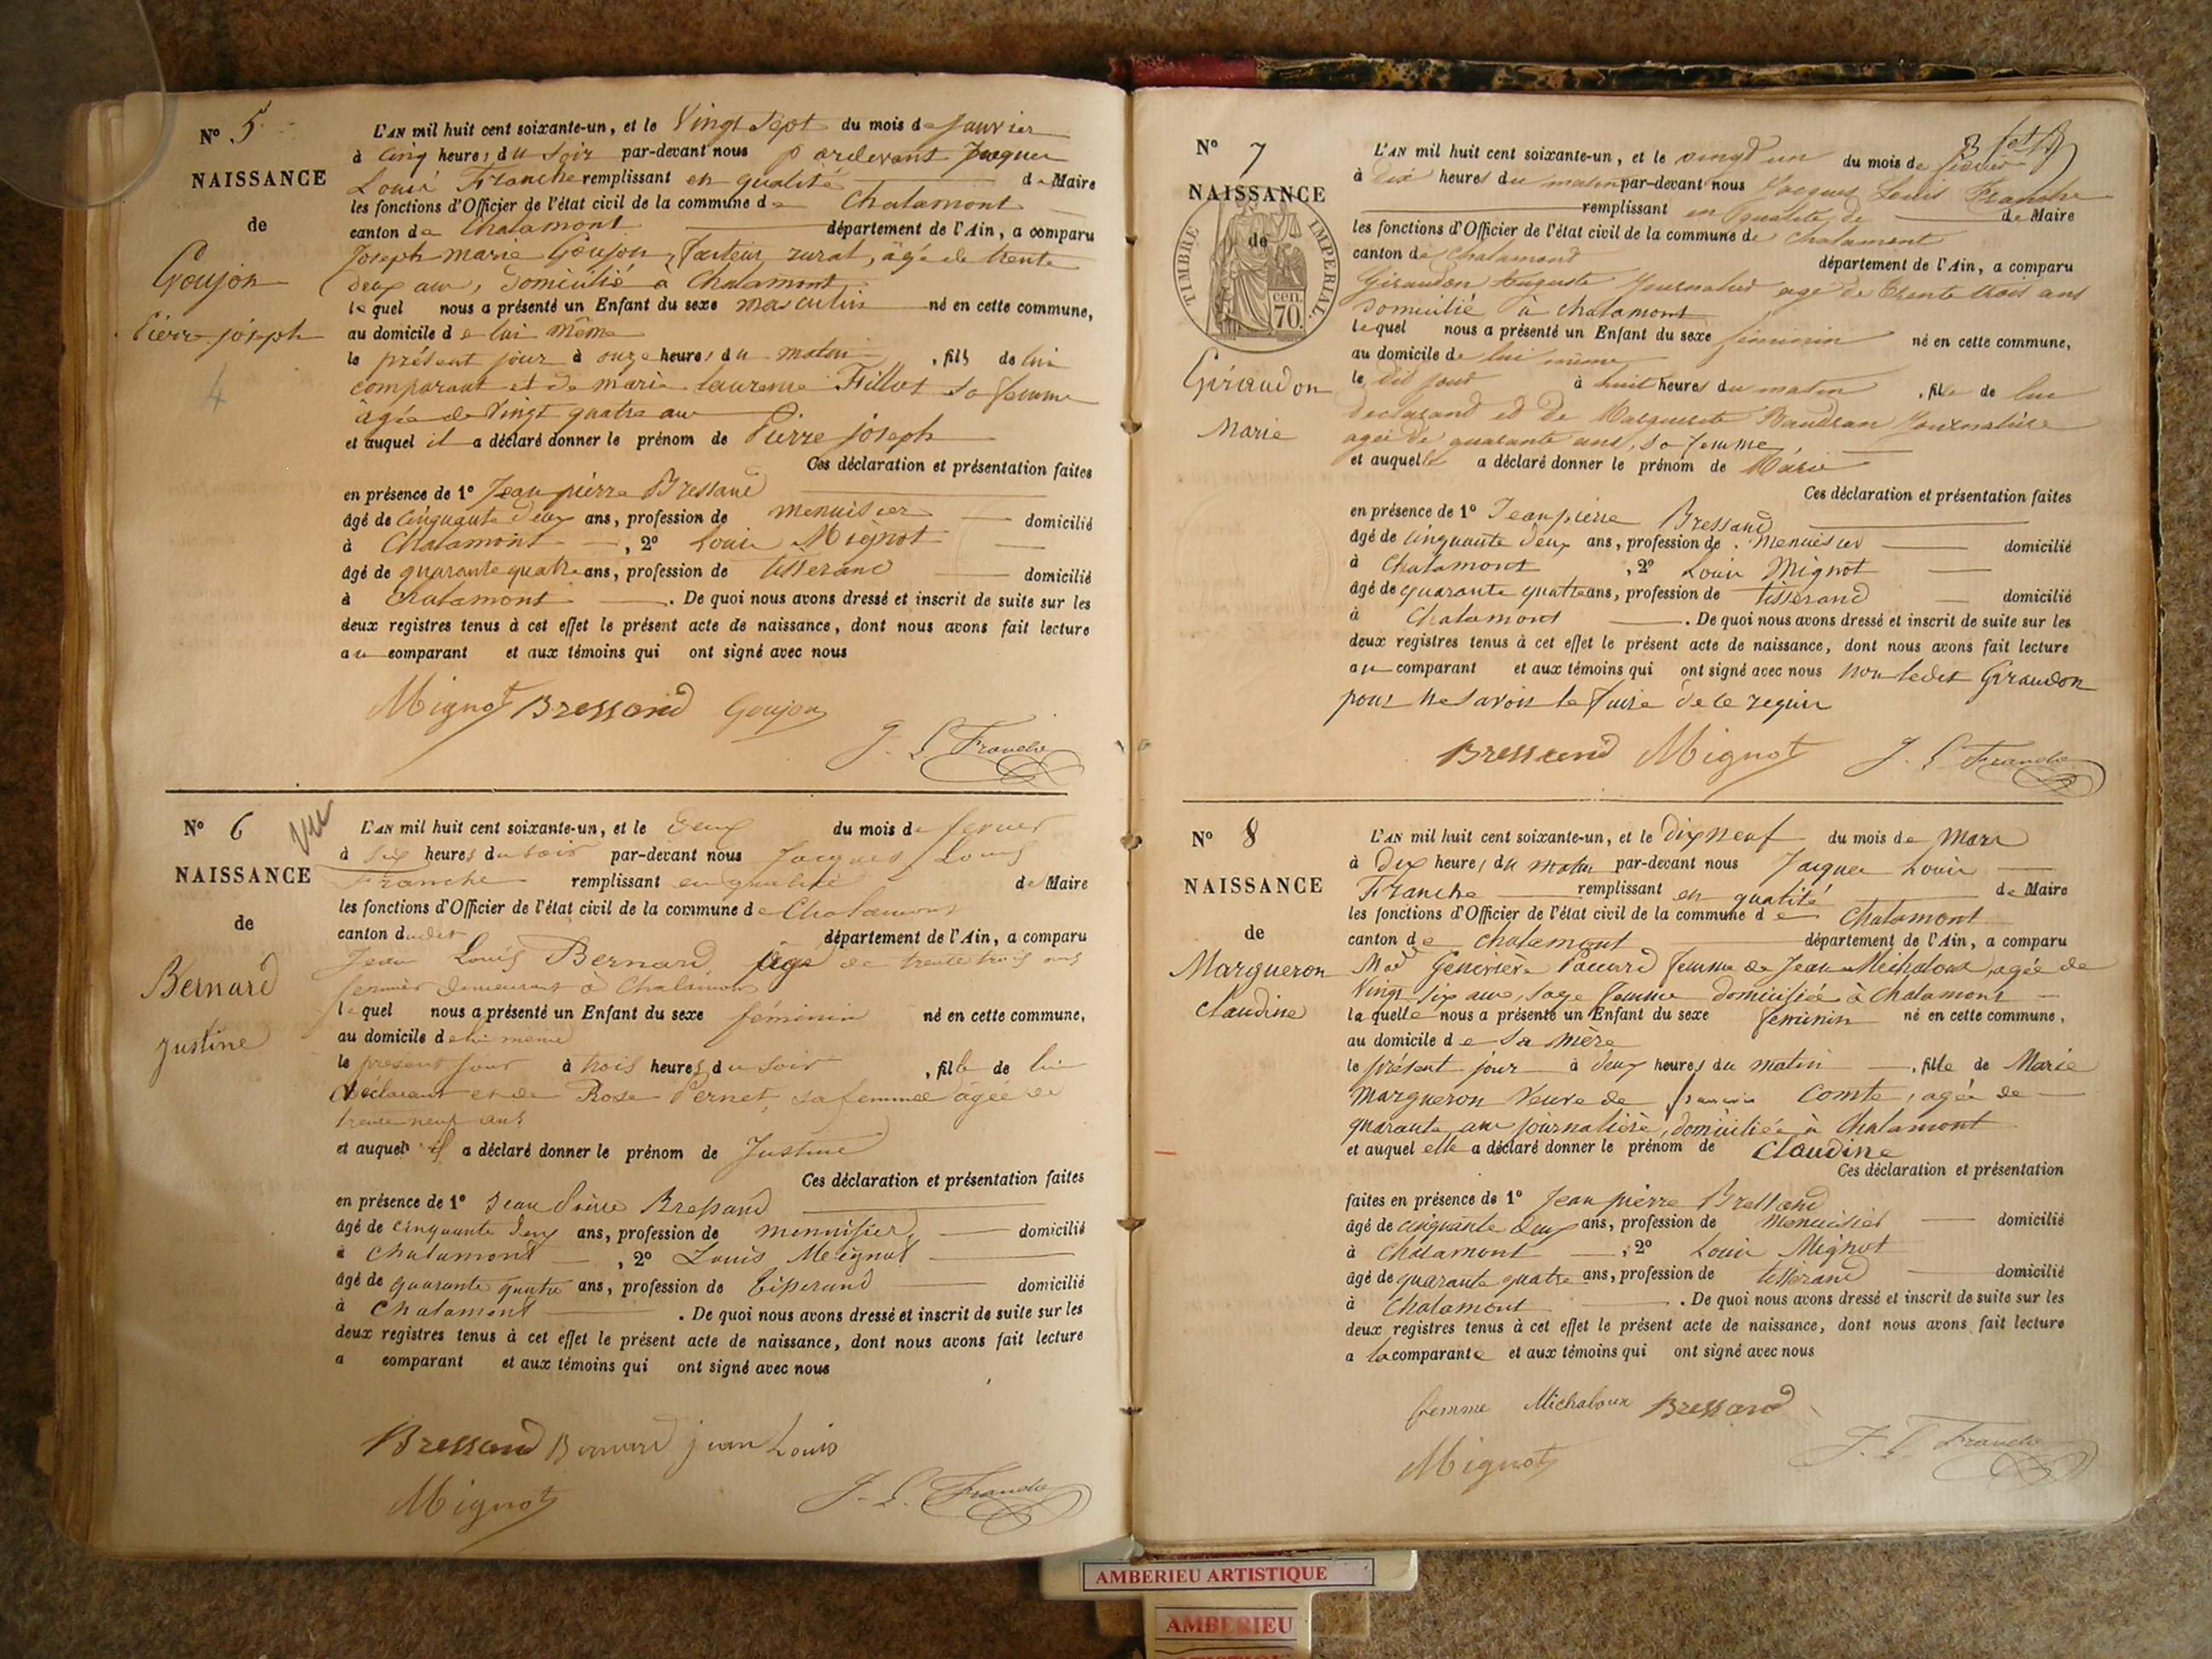 N° 5
NAISSANCE
de
Goujon
Pierre joseph
4
L'AN mil huit cent soixante-un, et le Vingt Sept du mois de janvier
à Cinq heures du Soir par-devant nous pardevant Jacques
Louis Franche remplissant en qualité de Maire
les fonctions d'Officier de l'état civil de la commune de Chalamont
canton de Chalamont département de l'Ain, a comparu
Joseph marie Goujon, facteur rural, âgé de trente
deux ans, domicilié à Chalamont
lequel nous a présenté un Enfant du sexe masculin né en cette commune,
au domicile de lui même
le présent jour à onze heures du matin, fils de lui
comparant et de marie laurence Fillot sa femme
âgée de Vingt quatre ans
et auquel il a déclaré donner le prénom de Pierre joseph
Ces déclaration et présentation faites
en présence de 1° Jean pierre Bressand
âgé de Cinquante deux ans, profession de menuisier domicilié
à Chalamont, 2° Louis Mignot
âgé de quarante quatre ans, profession de tisserand domicilié
à Chalamont. De quoi nous avons dressé et inscrit de suite sur les
deux registres tenus à cet effet le présent acte de naissance, dont nous avons fait lecture
au comparant et aux témoins qui ont signé avec nous
Mignot Bressand Goujon
J. L Franche
N° 6
vu
NAISSANCE
de
Bernard
Justine
L'AN mil huit cent soixante-un, et le deux du mois de fevrier
à six heures du soir par-devant nous Jacques Louis
Franche remplissant en qualité de Maire
les fonctions d'Officier de l'état civil de la commune de Chalamont
canton dudit département de l'Ain, a comparu
Jean Louis Bernard, âgé de trente trois ans
fermier demeurant à Chalamont
lequel nous a présenté un Enfant du sexe féminin né en cette commune,
au domicile de lui meme
le present jour à trois heures du soir, fille de lui
déclarant et de Rose Pernet, sa femme âgée de
trente neuf ans
et auquel il a déclaré donner le prénom de Justine
Ces déclaration et présentation faites
en présence de 1° Jean Pierre Bressand
âgé de cinquante deux ans, profession de menuisier domicilié
à Chalamont, 2° Louis Meignot
âgé de quarante quatre ans, profession de tisserand domicilié
à Chalamont. De quoi nous avons dressé et inscrit de suite sur les
deux registres tenus à cet effet le présent acte de naissance, dont nous avons fait lecture
a comparant et aux témoins qui ont signé avec nous
Bressand Bernard jean Louis
Mignot J. L. Franche
N° 7
NAISSANCE
de
TIMBRE IMPERIAL
70 cen.
Giraudon
Marie
L'AN mil huit cent soixante-un, et le vingt un du mois de fevrier
à dix heures du matin par-devant nous Jacques Louis Franche
remplissant en qualité de de Maire
les fonctions d'Officier de l'état civil de la commune de Chalamont
canton de Chalamont département de l'Ain, a comparu
Giraudon Auguste Journalier agé de trente trois ans
domicilié à Chalamont
lequel nous a présenté un Enfant du sexe feminin né en cette commune,
au domicile de lui même
le dit jour à huit heures du matin, fille de lui
declarant et de Marguerite Baudran Journalière
agée de quarante ans, sa femme
et auquel a déclaré donner le prénom de Marie
Ces déclaration et présentation faites
en présence de 1° Jean pierre Bressand
âgé de cinquante deux ans, profession de menuisier domicilié
à Chalamont, 2° Louis Mignot
âgé de quarante quatre ans, profession de tisserand domicilié
à Chalamont. De quoi nous avons dressé et inscrit de suite sur les
deux registres tenus à cet effet le présent acte de naissance, dont nous avons fait lecture
au comparant et aux témoins qui ont signé avec nous non ledit Giraudon
pour ne savoir le faire de ce requis
Bressand Mignot J. L Franche
N° 8
NAISSANCE
de
Margueron
Claudine
L'AN mil huit cent soixante-un, et le dix neuf du mois de Mars
à Dix heures du matin par-devant nous Jacques Louis
Franche remplissant en qualité de Maire
les fonctions d'Officier de l'état civil de la commune de Chalamont
canton de Chalamont département de l'Ain, a comparu
Genevière femme de Jean Michaloux, agée de
Vingt six ans, sage femme domiciliée à Chalamont
laquelle nous a présenté un Enfant du sexe feminin né en cette commune,
au domicile de Sa mère
le présent jour à deux heures du matin, fille de Marie
Margueron Veuve de Comte, agée de
quarante ans journalière, domiciliée à Chalamont
et auquel elle a déclaré donner le prénom de Claudine
Ces déclaration et présentation
faites en présence de 1° Jean pierre Bressand
âgé de cinquante deux ans, profession de menuisier domicilié
à Chalamont, 2° Louis Mignot
âgé de quarante quatre ans, profession de tisserand domicilié
à Chalamont. De quoi nous avons dressé et inscrit de suite sur les
deux registres tenus à cet effet le présent acte de naissance, dont nous avons fait lecture
a la comparante et aux témoins qui ont signé avec nous
femme Michaloux Bressand
Mignot J. L. Franche
AMBERIEU ARTISTIQUE
AMBERIEU